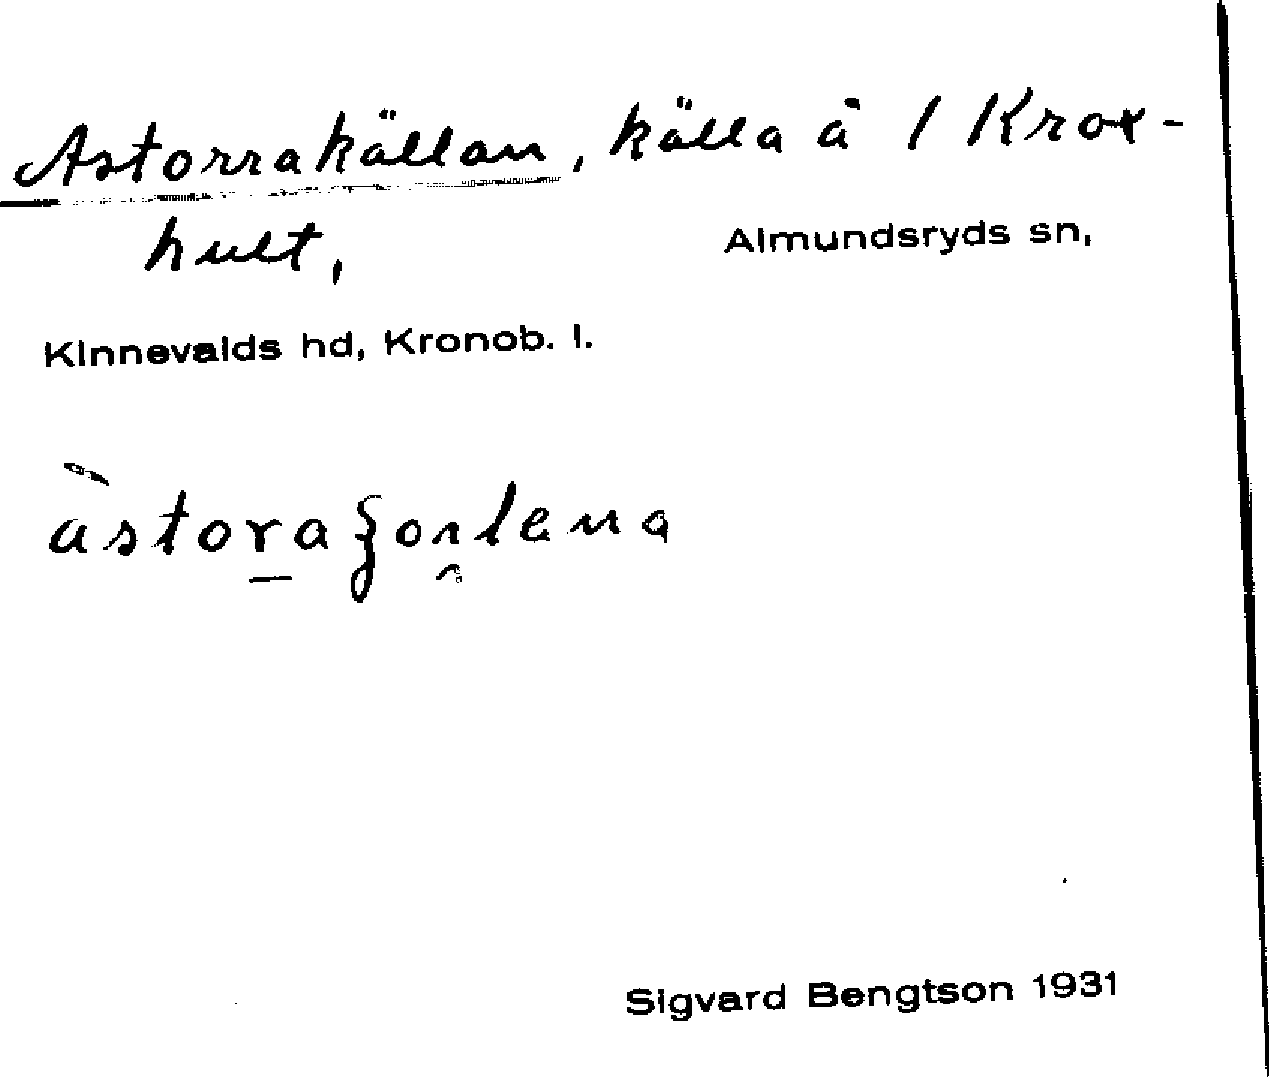 Astorrakällan, källa å 1 Krox-
hult, Almundsryds sn,
Kinnevalds hd, Kronob. l.
Sigvard Bengtson 1931